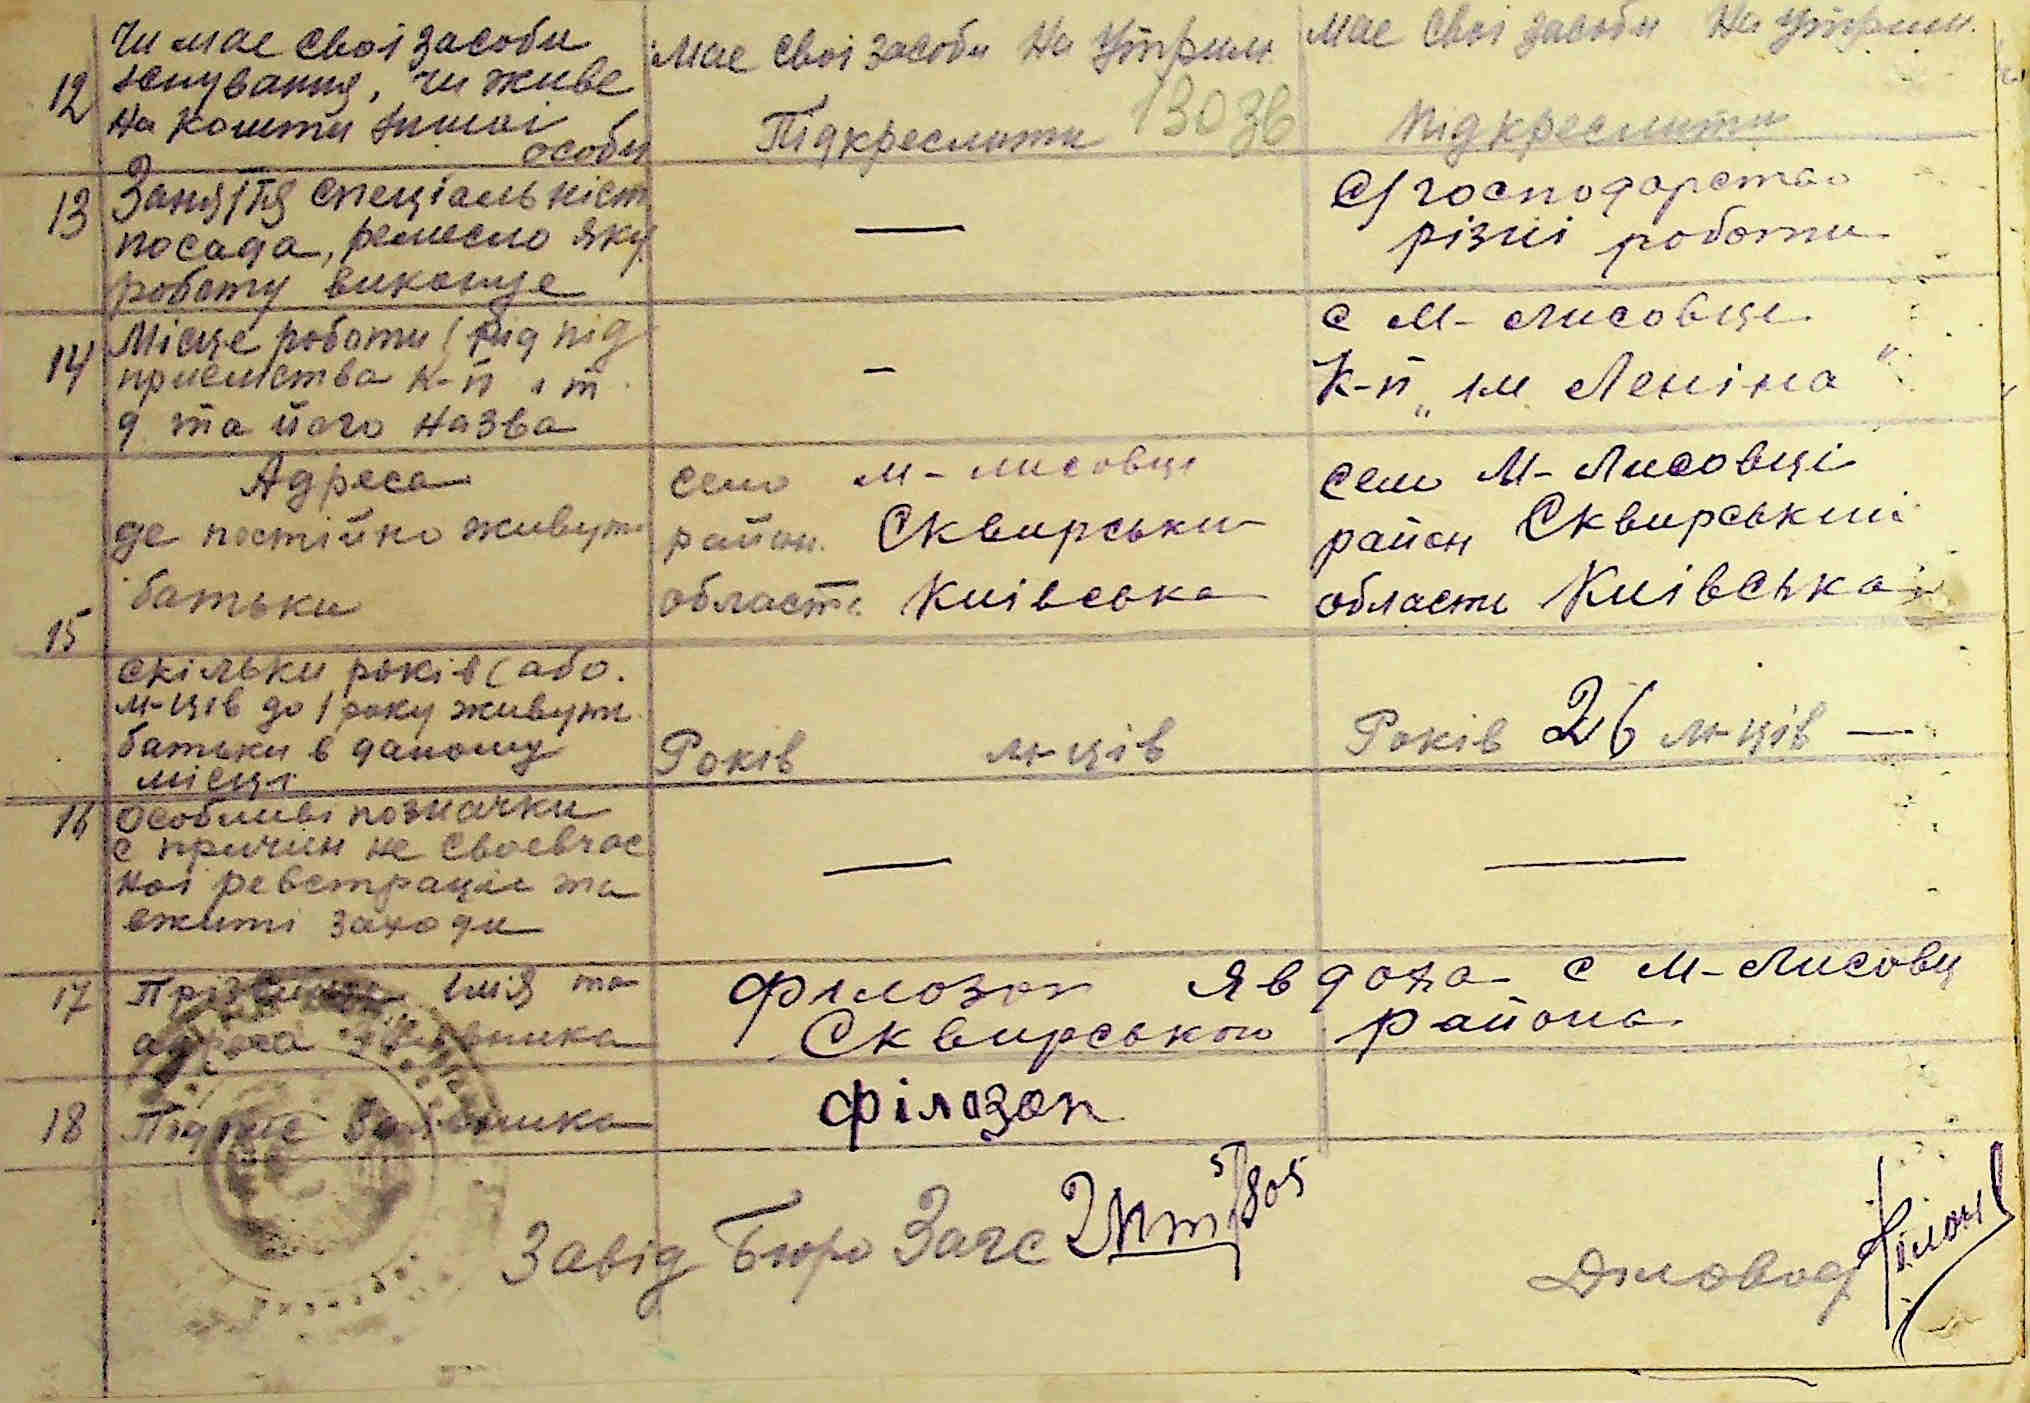 12
Чи має свої засоби
існування, чи живе
на кошти іншої
особи
Має свої засоби На Утрим.
Підкреслити 130 зв
Має свої засоби На Утрим.
Підкреслити
13
Заняття спеціальніст
посада, ремесло яку
роботу виконує
—
С/господарство
різні роботи
14
Місце роботи (вид під
приємства к-п і т
д та його назва
—
с М-Лисовце
К-п „ ім Леніна "
15
Адреса
де постійно живуть
батьки
село М-Лисовці
район Сквирськи
область Київська
село М-Лисовці
район Сквирський
область Київська
скільки років (або
м-ців до 1 року живуть
батьки в даному
місці
Років м-ців
Років 26 м-ців —
16
Особливі позначки
с причин не своєвчас
ної реєстрації та
вжиті заходи
—
—
17
Прізвище імія та
адреса заявника
Філозоп Явдоха с М-Лисовц
Сквирського района
18
Підпис Заявника
Філозоп
Завід Бюро Загс
Діловод